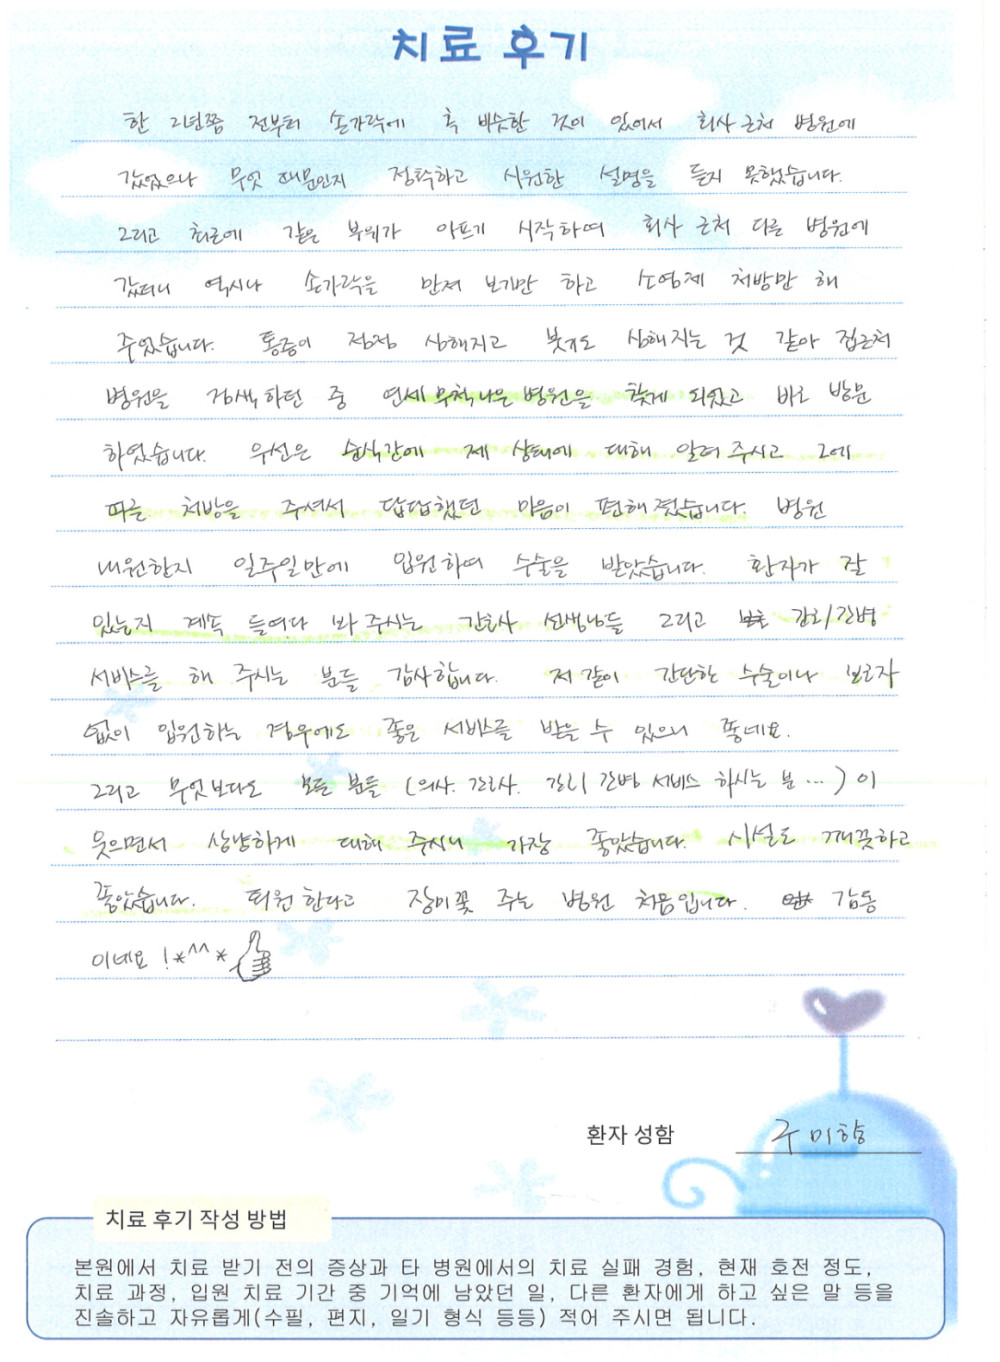 치료 후기
한 2년쯤 전부터 손가락에 혹 비슷한 것이 있어서 회사 근처 병원에
갔었으나 무엇 때문인지 정확하고 시원한 설명을 듣지 못했습니다.
그리고 최근에 같은 부위가 아프기 시작하여 회사 근처 다른 병원에
갔더니 역시나 손가락을 만져 보기만 하고 소염제 처방만 해
주었습니다. 통증이 점점 심해지고 붓기도 심해지는 것 같아 집근처
병원을 검색하던 중 연세무척나은병원을 찾게 되었고 바로 방문
하였습니다. 우선은 순식간에 제 상태에 대해 알려 주시고 그에
따른 처방을 주셔서 답답했던 마음이 편해졌습니다. 병원
내원한지 일주일만에 입원하여 수술을 받았습니다. 환자가 잘
있는지 계속 들여다 봐 주시는 간호사 선생님들 그리고 간호/간병
서비스를 해 주시는 분들 감사합니다. 저 같이 간단한 수술이나 보호자
없이 입원하는 경우에도 좋은 서비스를 받을 수 있으니 좋네요.
그리고 무엇보다도 모든 분들 (의사. 간호사. 간호/간병 서비스 하시는 분 ...) 이
웃으면서 상냥하게 대해 주시니 가장 좋았습니다. 시설도 깨끗하고
좋았습니다. 퇴원한다고 장미꽃 주는 병원 처음입니다. 감동
이네요!*^^*
환자 성함 구미향
치료 후기 작성 방법
본원에서 치료 받기 전의 증상과 타 병원에서의 치료 실패 경험, 현재 호전 정도,
치료 과정, 입원 치료 기간 중 기억에 남았던 일, 다른 환자에게 하고 싶은 말 등을
진솔하고 자유롭게(수필, 편지, 일기 형식 등등) 적어 주시면 됩니다.